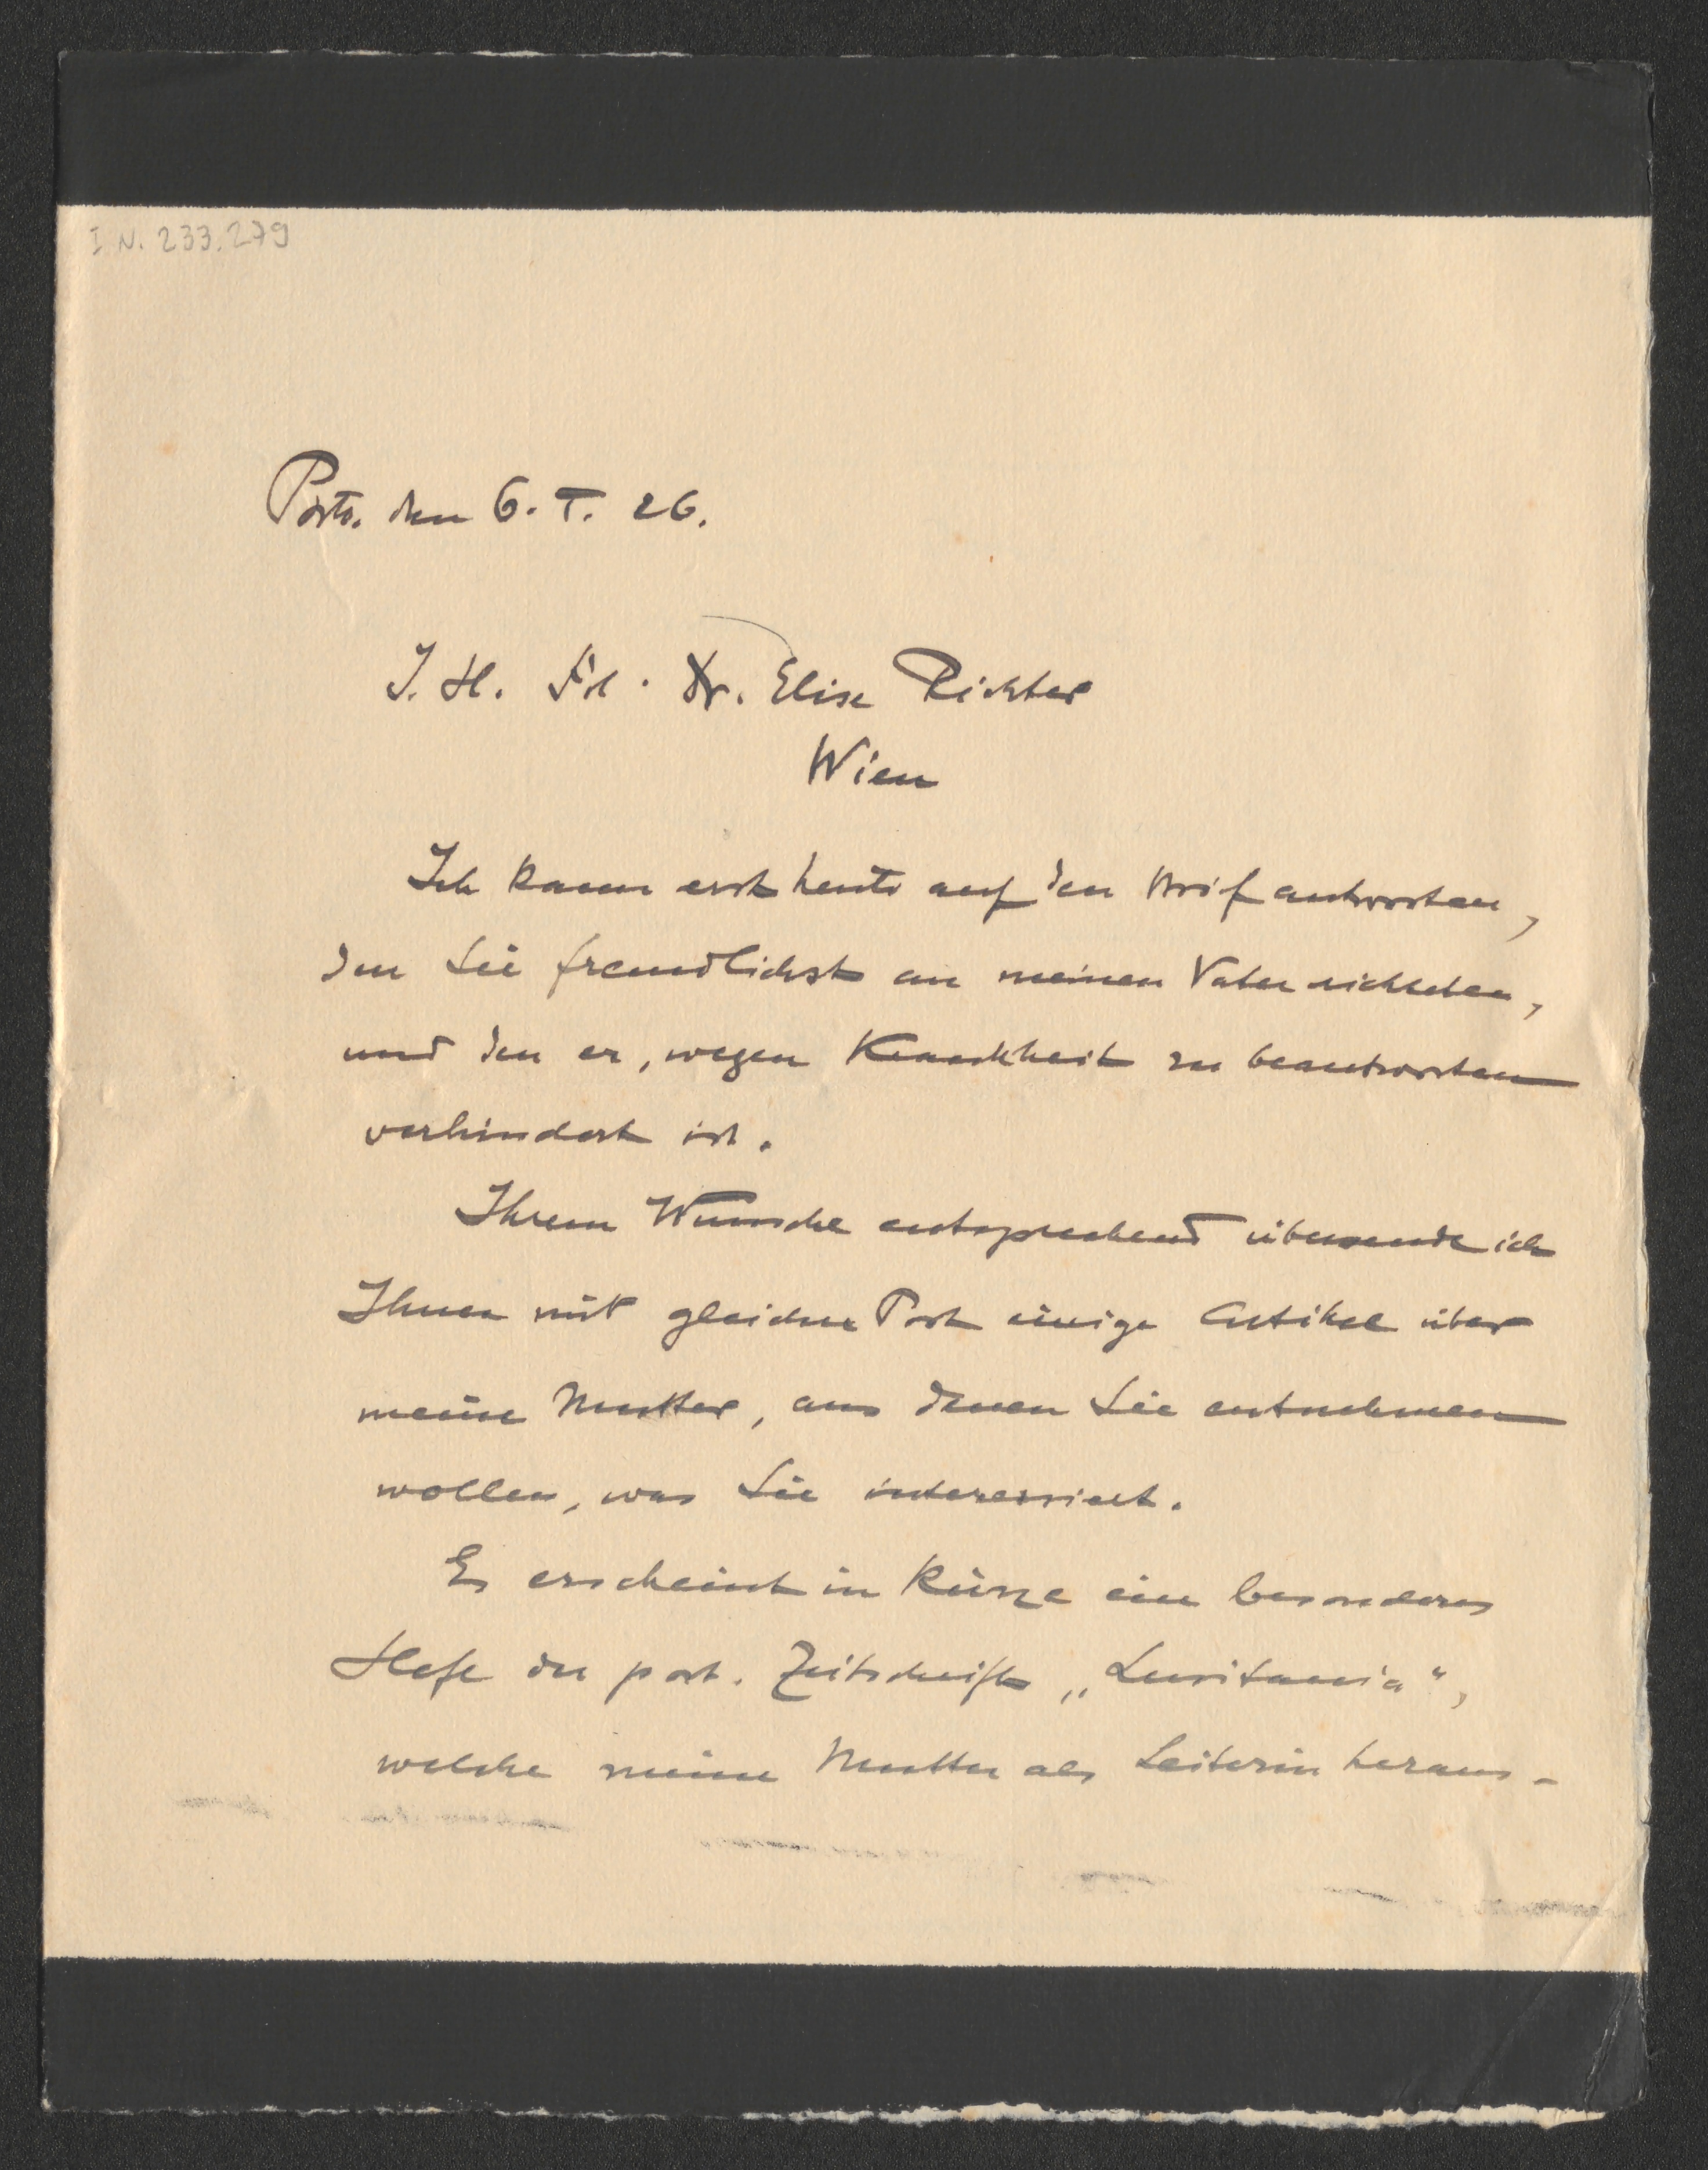 I. N. 233.279
Porto. den 6. I. 26.
I. H. Frl. Dr. Elise Richter
Wien
Ich kann erst heute auf den Brief antworten,
den Sie freundlichst an meinen Vater richteten,
und den er, wegen Krankheit zu beantworten
verhindert ist.
Ihrem Wunsche entsprechend übersende ich
Ihnen mit gleicher Post einige Artikel über
meine Mutter, aus denen Sie entnehmen
wollen, was Sie interessiert.
Es erscheint in Kürze ein besonderes
Heft der port. Zeitschrift „Lusitania“,
welche meine Mutter als Leiterin heraus-